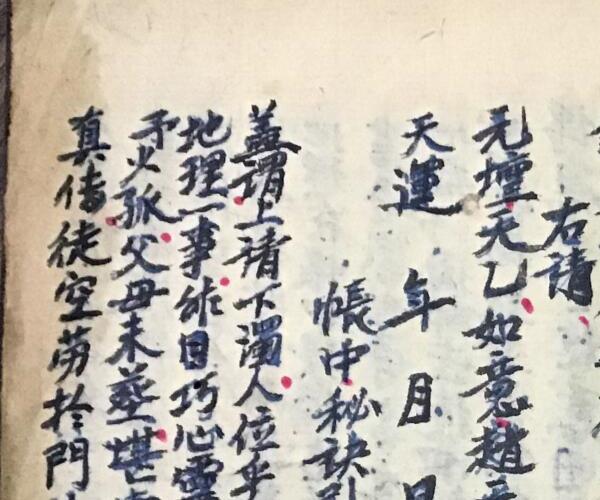 右請
元壇天乙如意趙
天運 年 月 日
帳中秘訣引
蓋謂上清下濁人位乎
地理一事術日巧心靈
予火孤父母未塟堪
真傳徒空勞於門